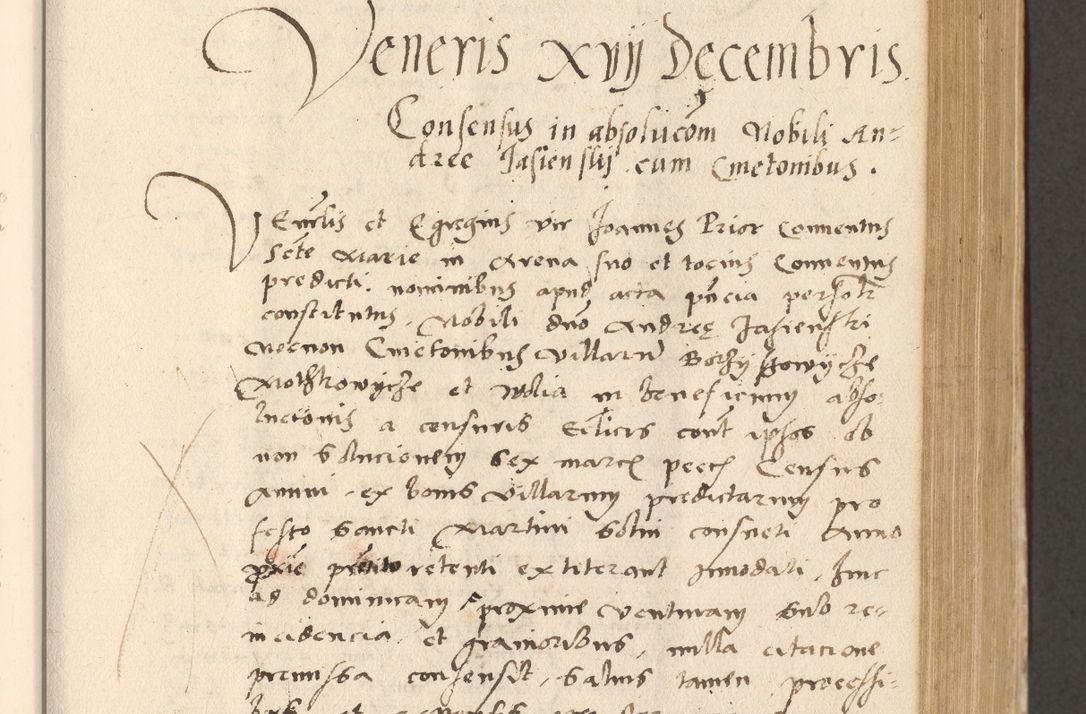 Veneris xvij Decembris.
Consensus in absolucōm Nobili An-
dree Jasienskij cum Cmetonibus.
VEnerlis et Egregius vir Joannes Prior Conuentus
Scte Marie in Arena suo et tocius Conuentus
predicti nominibus apud acta pñcia personlr
constitutus, Nobili dño Andreę Jasienski
necnon Cmetonibus villarũ
et Wolia in beneficium abso-
lucionis a censuris Eclicis cont ipsos ob
non solucionem sex marc pecc Census
annui ex bonis villarum predictarum pro
festo Sancti Martini solui consueti Anno
pxie pretito retenti extiterant Inuodati, hinc
ad dominicam proxime venturam sub re-
incidencia, et grauioribus, nulla citacione
premissa consensit, saluis tamen processi-
bus et